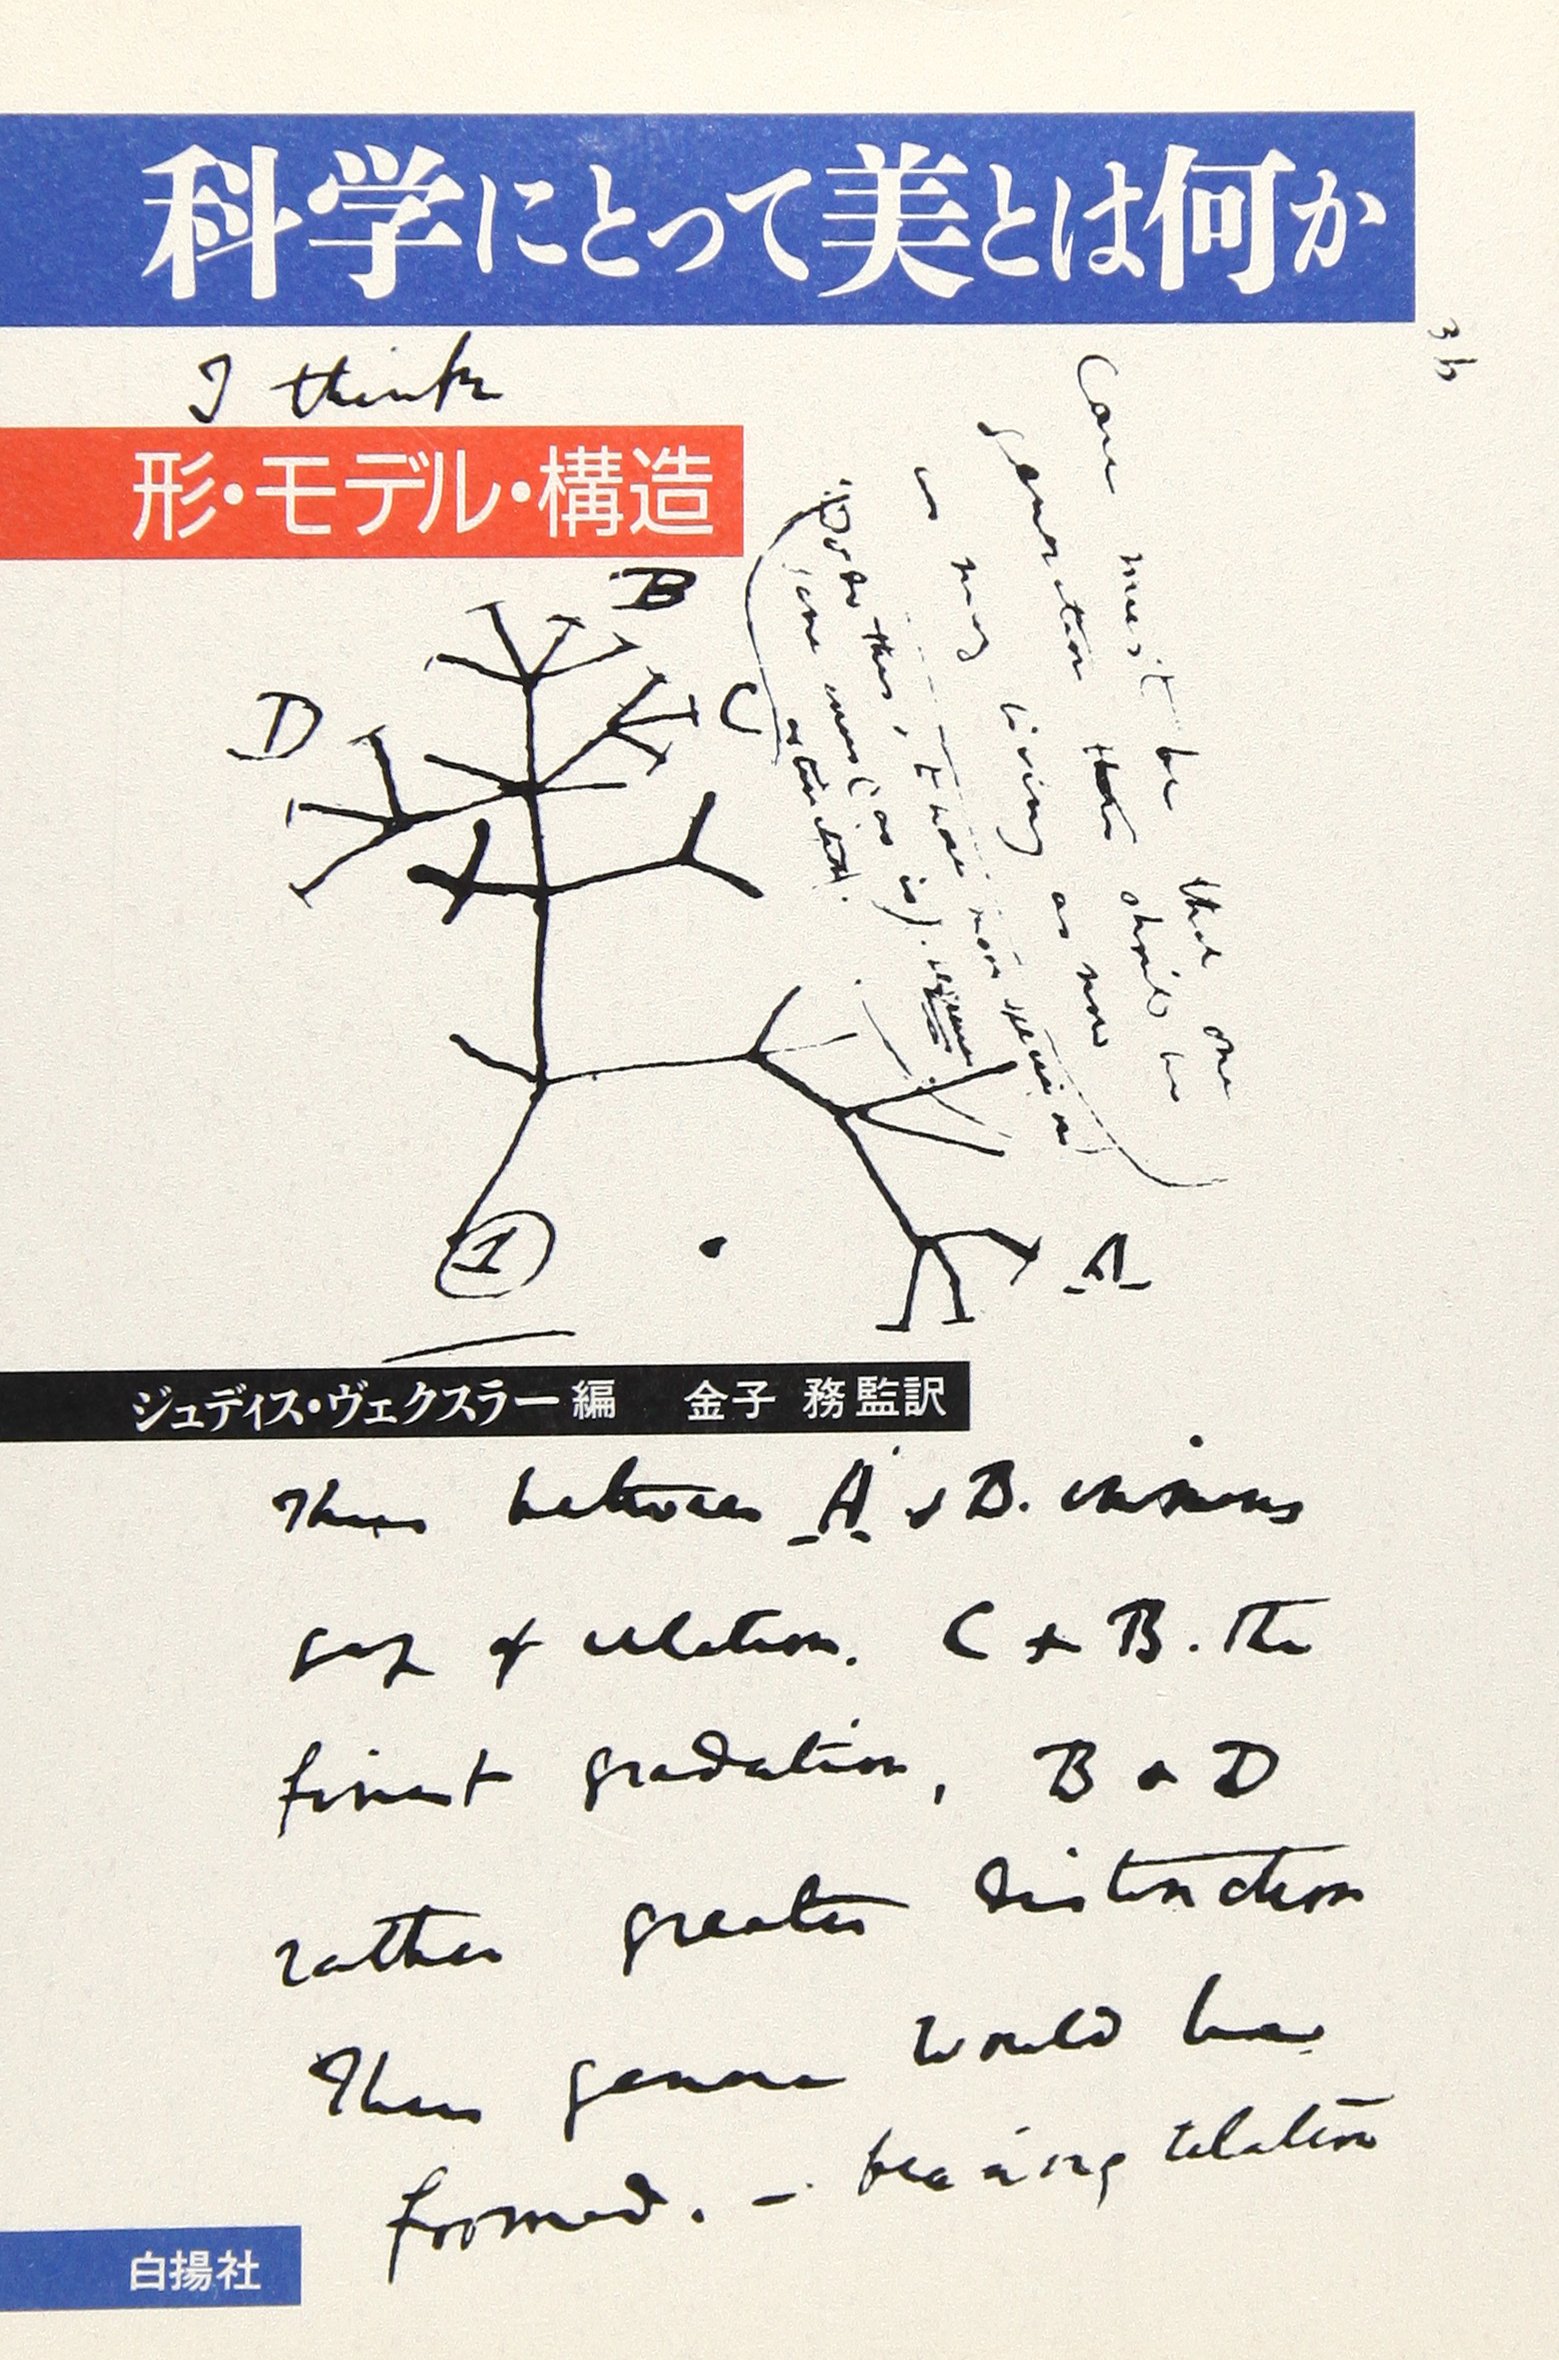 科学にとって美とは何か
I think
形・モデル・構造
B
D
C
Case must be that one
generation then should be
as many living as now
To do this, & to have many species in
same genus (as is). requires
extinction.
1
A
ジュディス・ヴェクスラー編 金子 務監訳
Thus between A & B. immens
gap of relation. C & B. The
finest gradation, B & D
rather greater distinction
Thus genera would be
formed. — bearing relation
白揚社